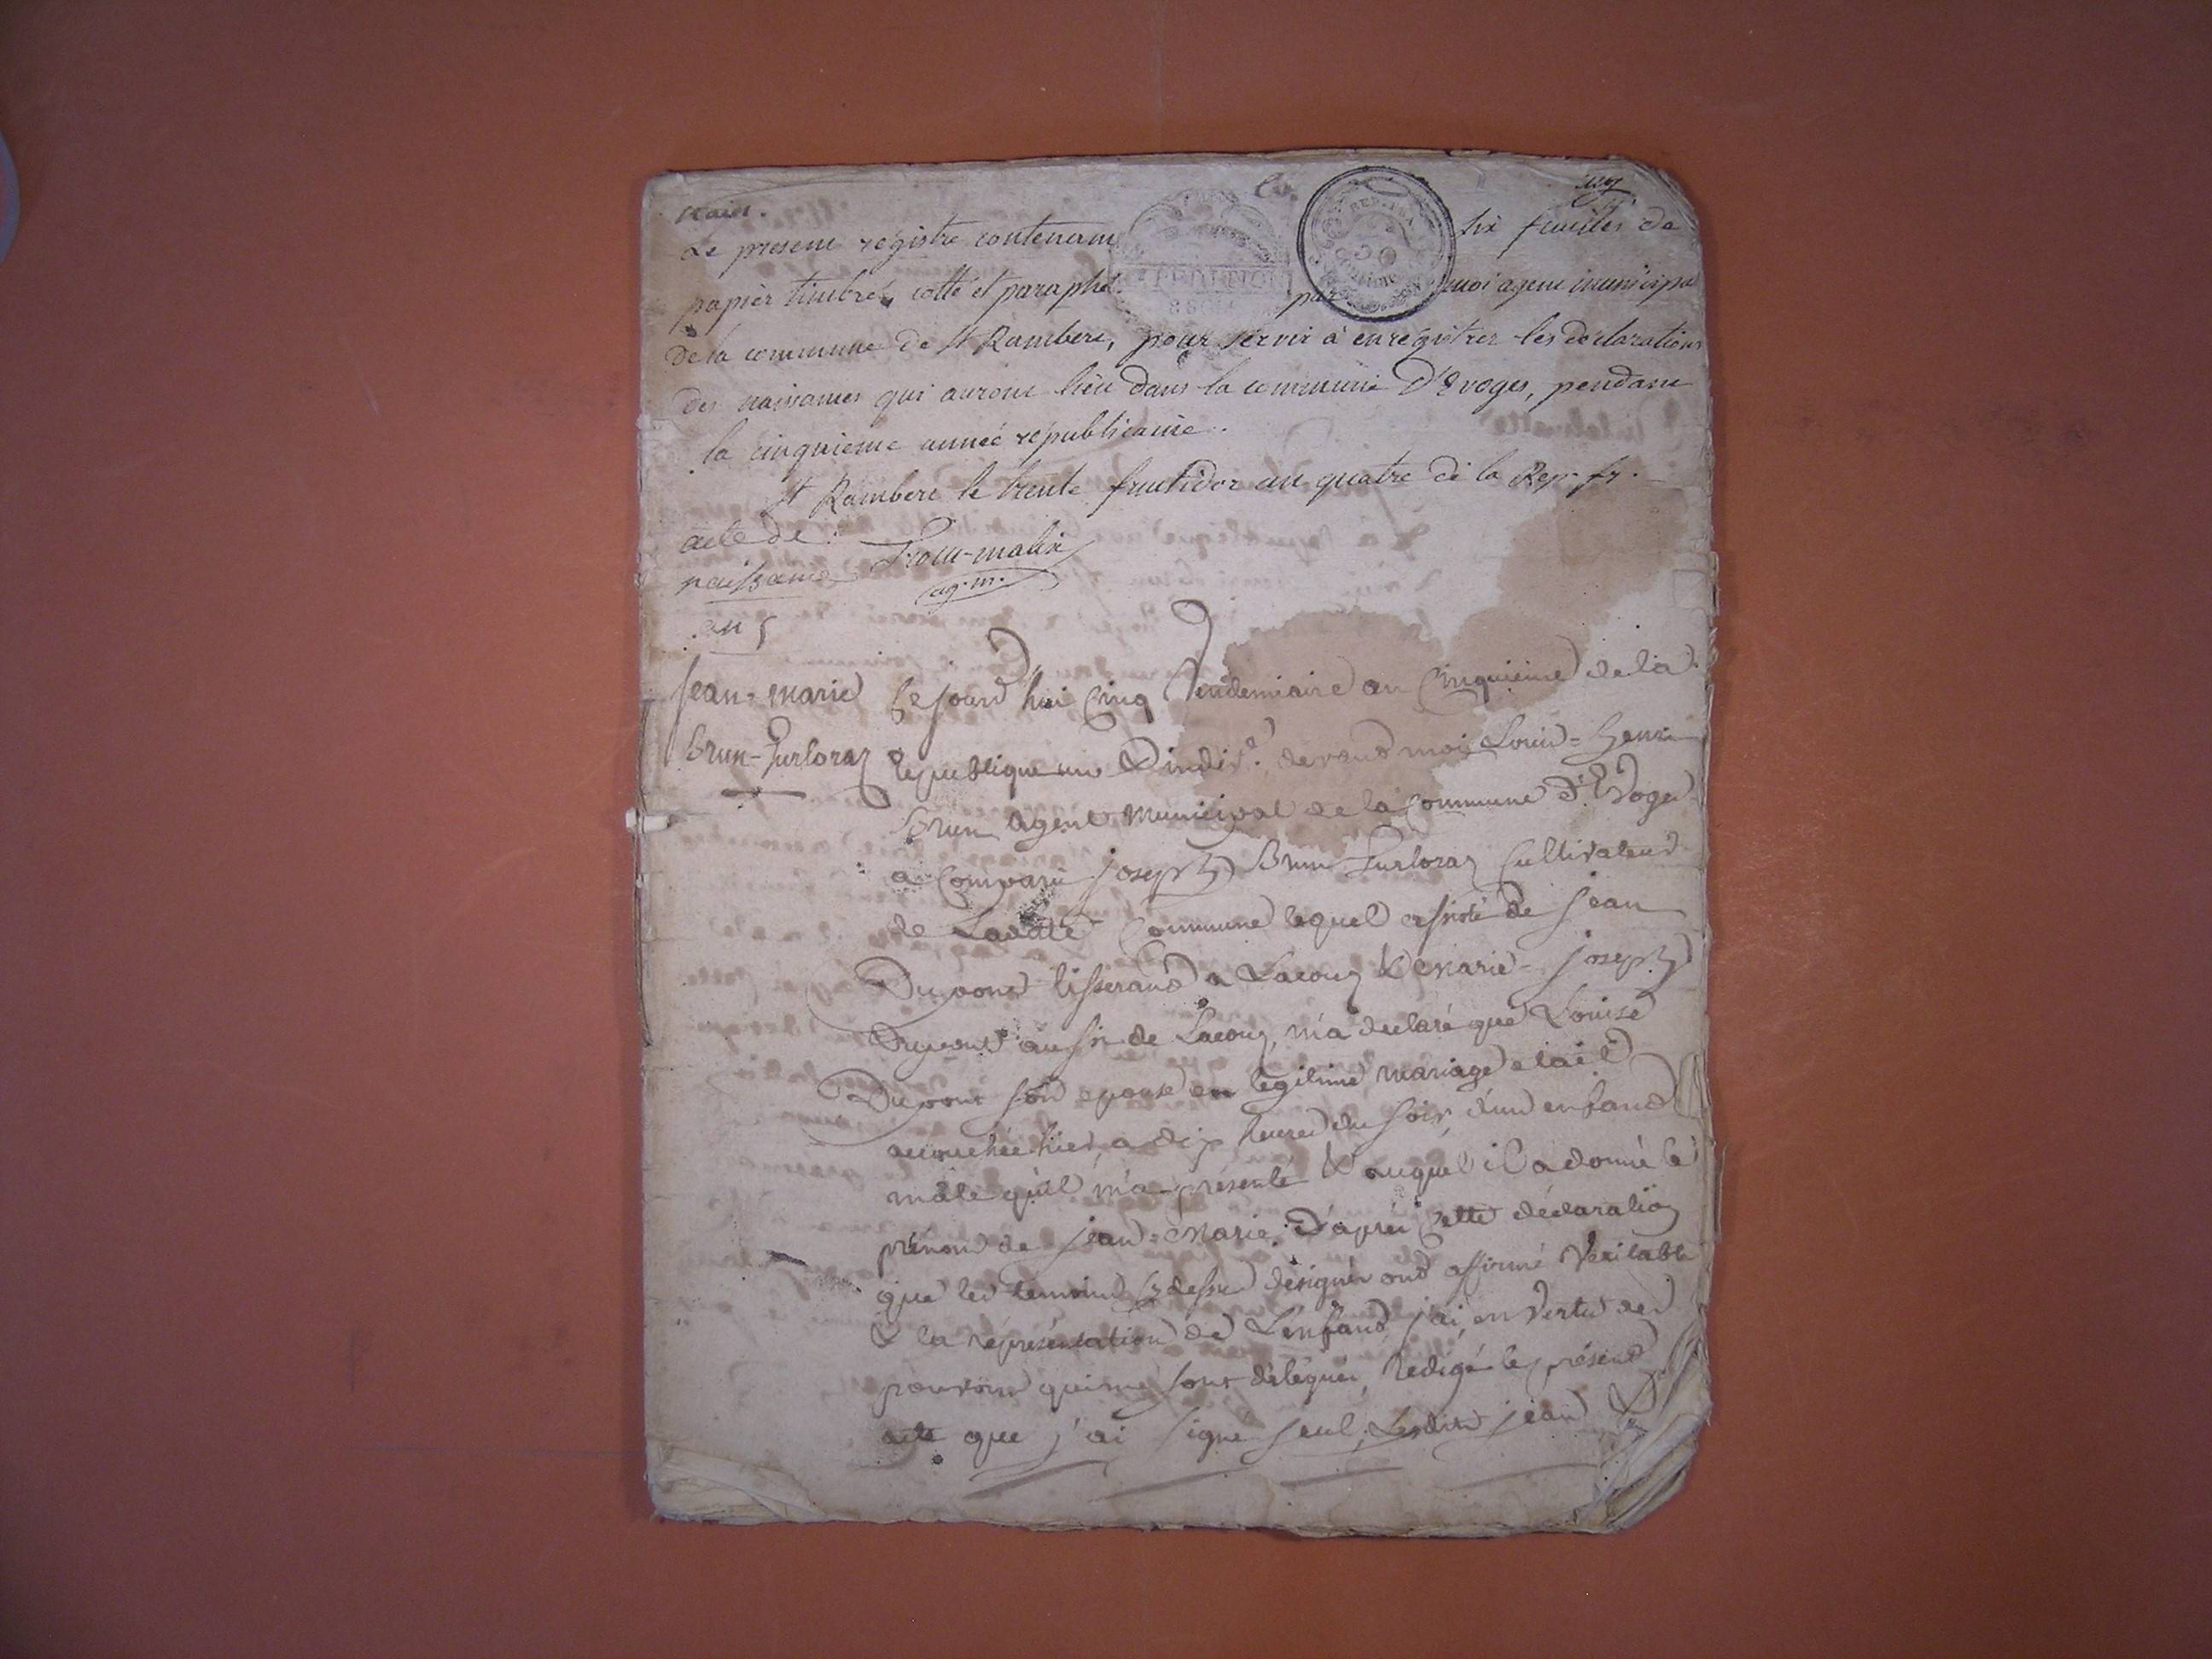 naiss.
Le present régistre contenant six feuilles de
papier timbré, cotté et paraphé par moi agent municipal
de la commune de St Rambert, pour servir à enregistrer les déclarations
des naissances qui auront lieu dans la commune d'Evoges, pendant
la cinquieme année républicaine.
St Rambert le trente fructidor an quatre de la Rep. fr.
acte de
naissance
ag. m.
an 5
Jean-Marie
Brun-Turloraz
Cejourd'hui cinq vendemiaire an cinquieme de la
Republique une & indiv.e devand moi Louis-henri
Brun agent municipal de la commune d'Evoges
a comparu joseph Brun Turloraz cultivateur
de Ladite commune lequel assisté de jean
Dupond tisserand a Lacouz & Marie-joseph
Dupond aussi de Lacouz, m'a declaré que Louise
Dupont son epouse en legitime mariage etait
accouchée hier, a dix heures du soir, d'un enfand
mâle qu'il m'a présenté & auquel il a donné le
prénom de jean-Marie; d'après cette déclaration
que les temoins cy dessus désignés ond affirmé veritable
& la représentation de L'enfand j'ai, en vertu des
pouvoirs qui me sont délégués, redigé le présend
acte que j'ai signé seul, Lesdits jean &